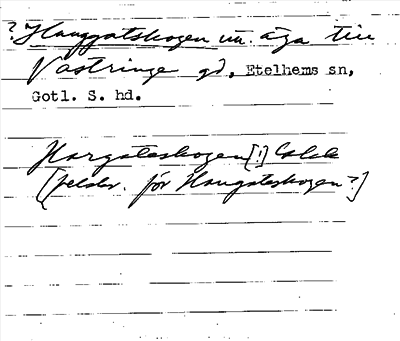 ? Hauggatskogen un. äga till
Västringe gd, Etelhems sn,
Gotl. S. hd.
Hargateskogen [!] Calck
[felskr. för Haugateskogen?]